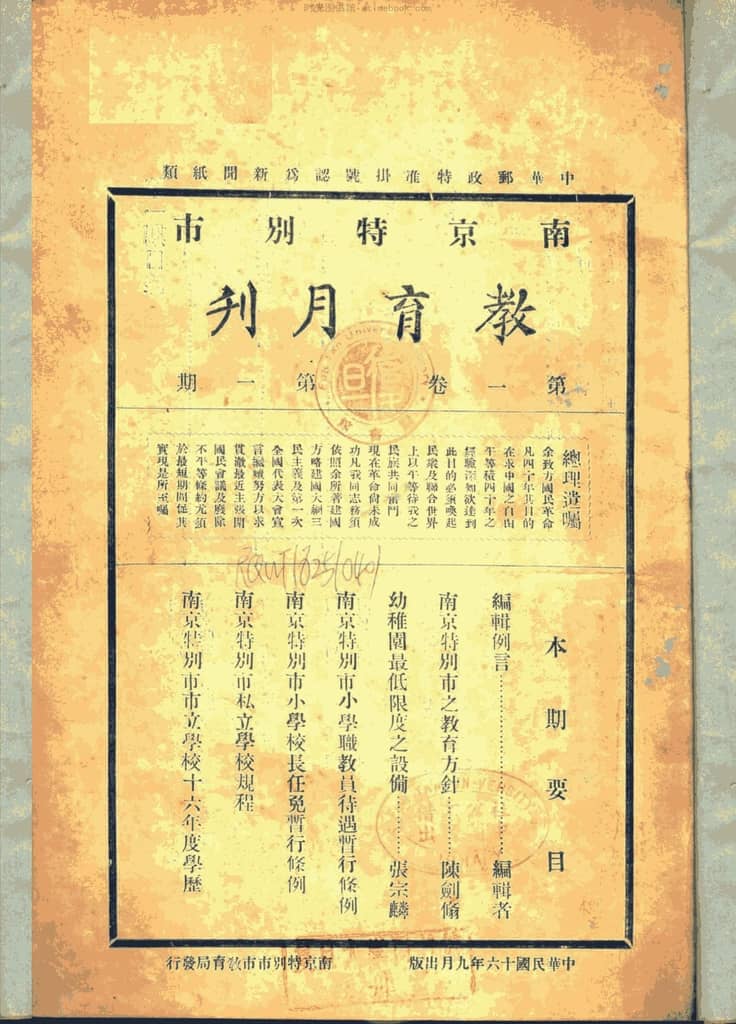 中華郵政特准掛號認爲新聞紙類
南京特別市
教育月刊
第一卷 第一期
總理遺囑
余致力國民革命
凡四十年其目的
在求中國之自由
平等積四十年之
經驗深知欲達到
此目的必須喚起
民衆及聯合世界
上以平等待我之
民族共同奮鬥
現在革命尙未成
功凡我同志務須
依照余所著建國
方略建國大綱三
民主義及第一次
全國代表大會宣
言繼續努力以求
貫澈最近主張開
國民會議及廢除
不平等條約尤須
於最短期間促其
實現是所至囑
本期要目
編輯例言……編輯者
南京特別市之教育方針……陳劍翛
幼稚園最低限度之設備……張宗麟
南京特別市小學職教員待遇暫行條例
南京特別市小學校長任免暫行條例
南京特別市私立學校規程
南京特別市市立學校十六年度學歷
中華民國十六年九月出版
南京特別市市教育局發行